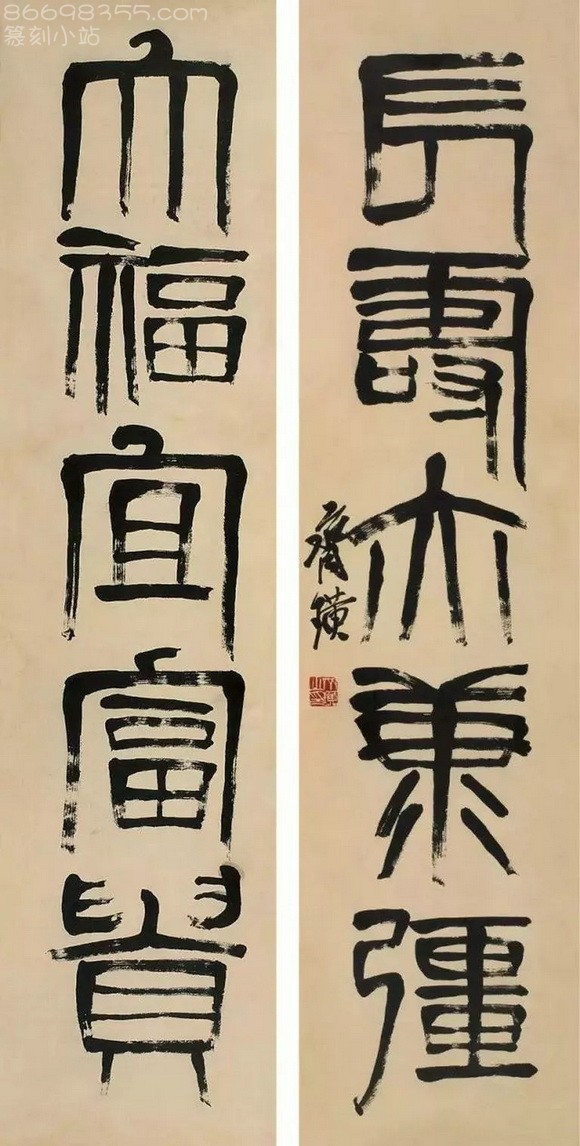 86698355.com
篆刻小站
長壽亦兼彊
大福宜富貴
齊璜